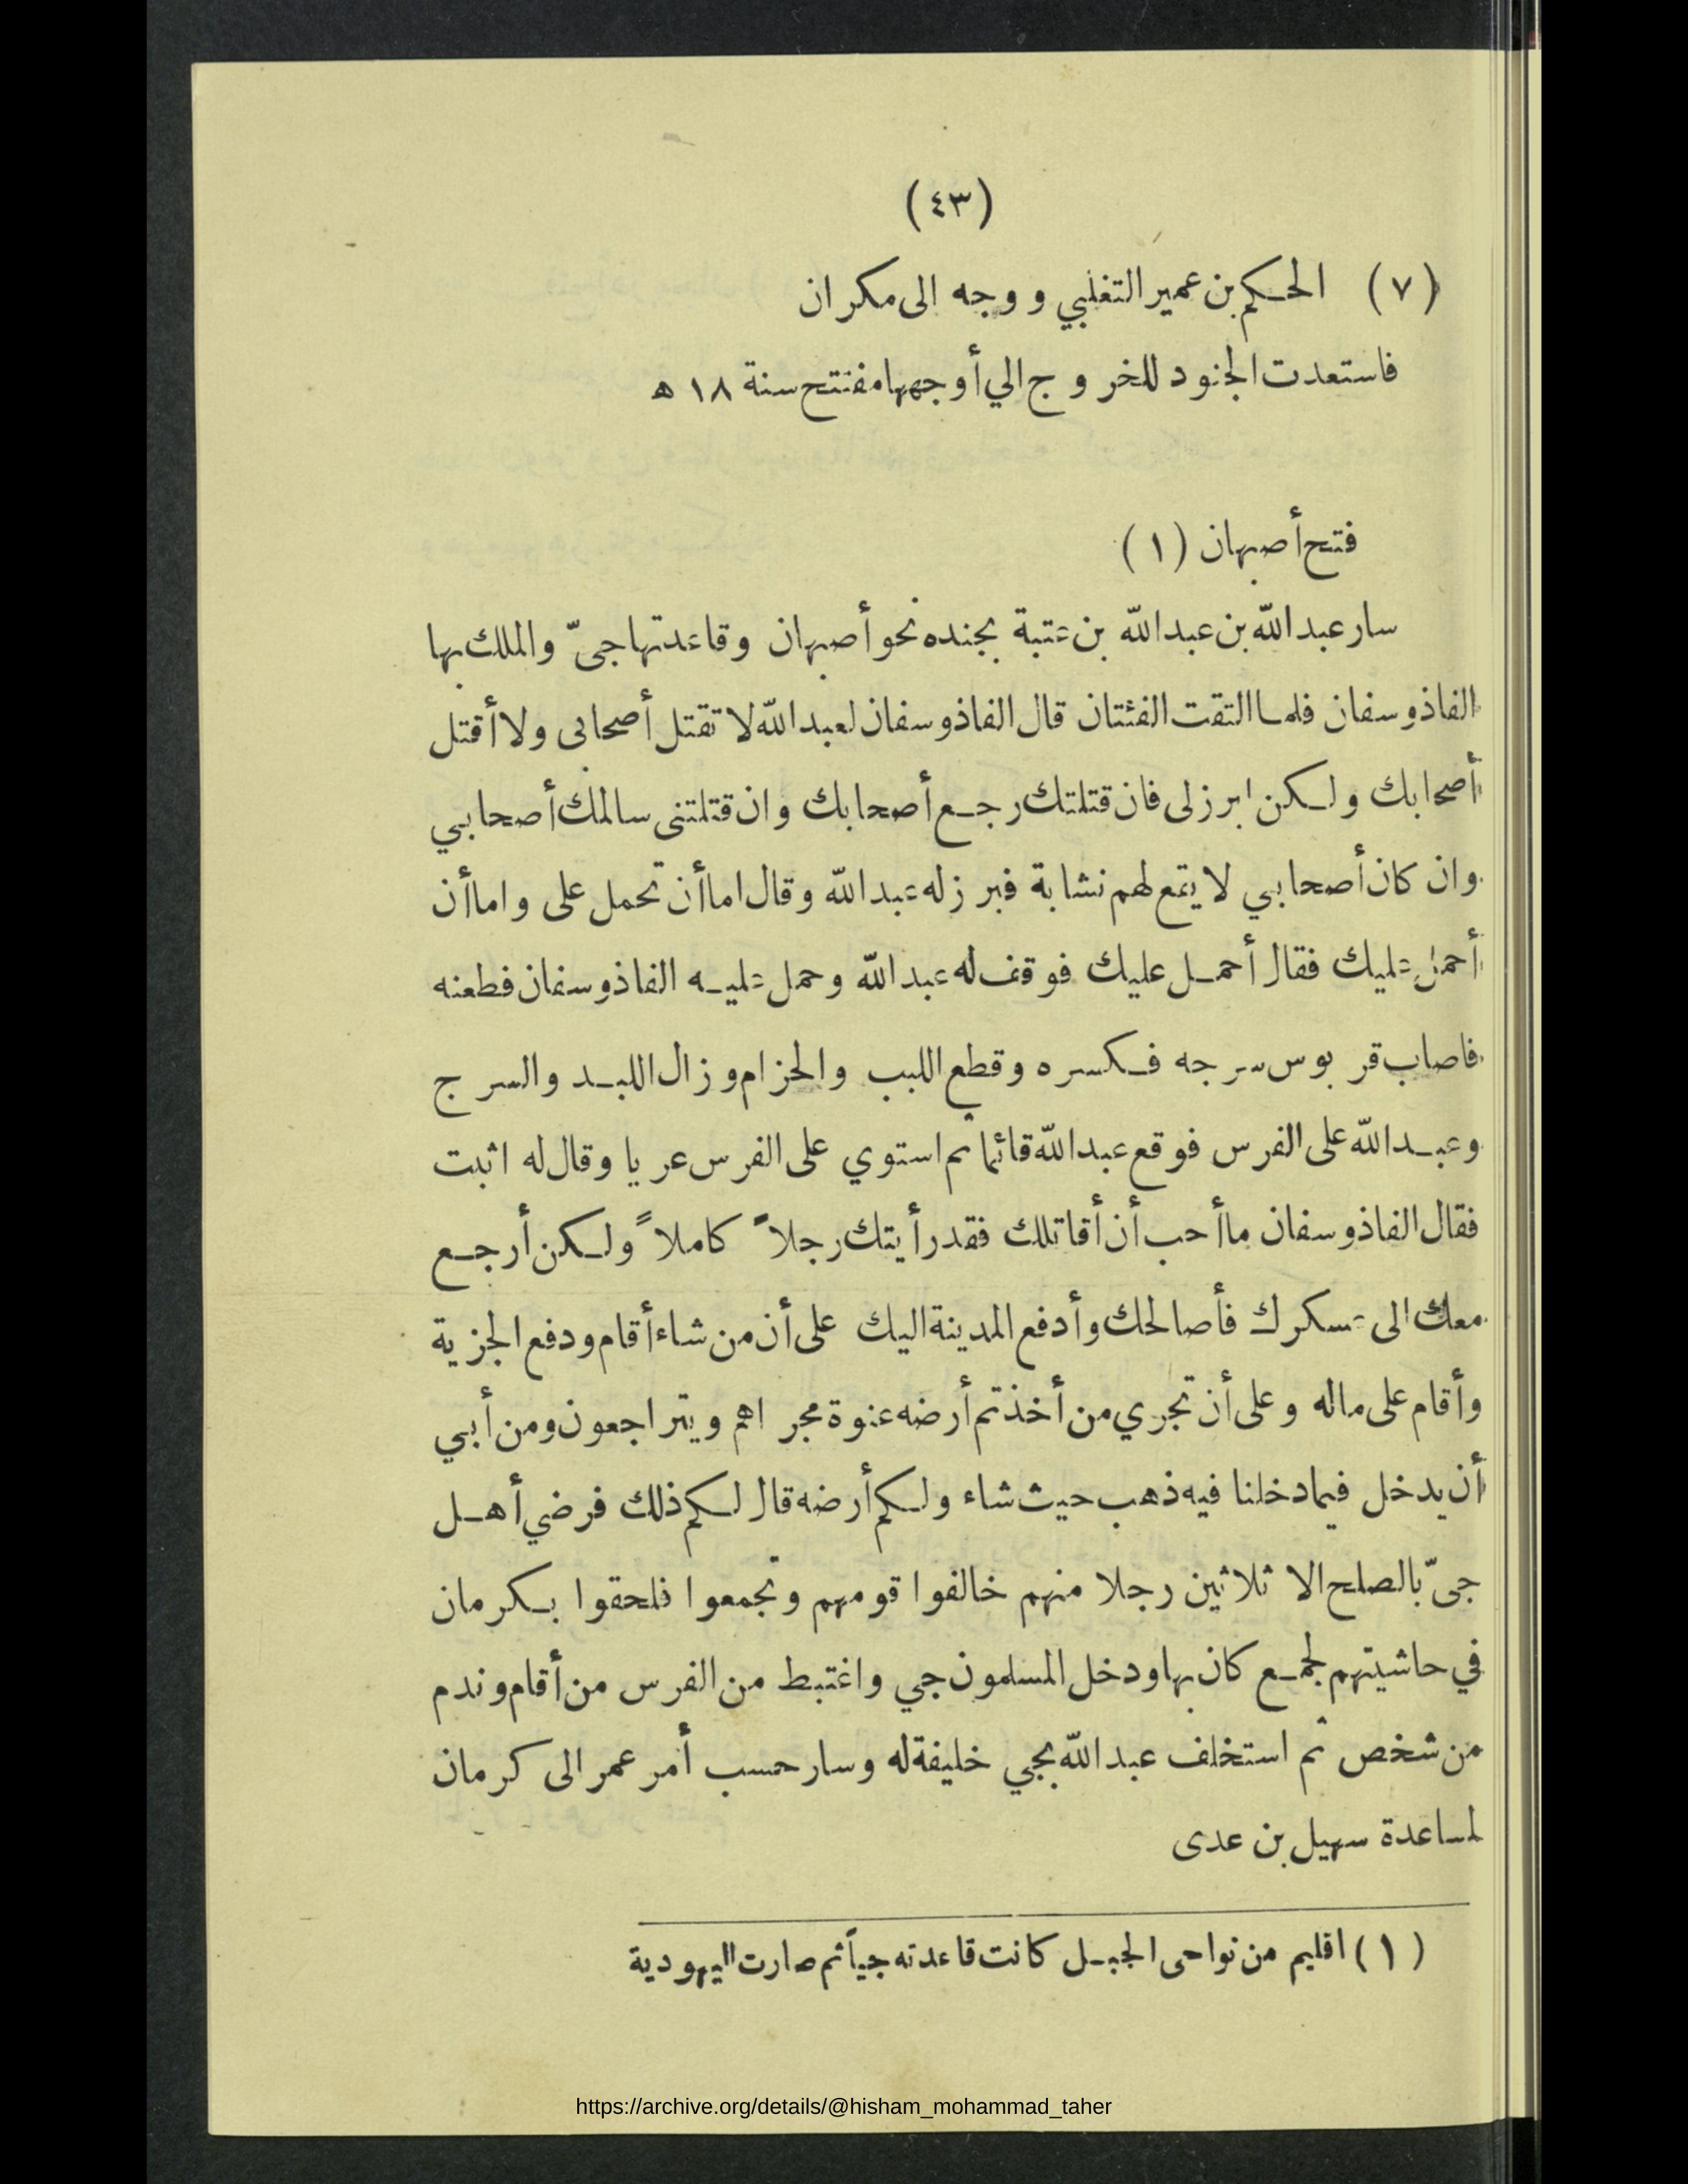 (٤٣)
(٧) الحكم بن عمير التغلبي ووجه الى مكران
فاستعدت الجنود للخروج الي أوجهها مفتتح سنة ١٨ ه
فتح أصبهان (١)
سار عبد الله بن عبد الله بن عتبة بجنده نحو أصبهان وقاعدتها جىّ والملك بها
الفاذوسفان فلما التقت الفئتان قال الفاذوسفان لعبد الله لا تقتل أصحابى ولا أقتل
أصحابك ولكن ابرز لى فان قتلتك رجع أصحابك وان قتلتنى سالمك أصحابي
وان كان أصحابي لا يقع لهم نشابة فبرز له عبد الله وقال اما أن تحمل على واما أن
أحمل عليك فقال أحمل عليك فوقف له عبد الله وحمل عليه الفاذوسفان فطعنه
فاصاب قربوس سرجه فكسره وقطع اللبب والحزام وزال اللبد والسرج
وعبد الله على الفرس فوقع عبد الله قائما ثم استوي على الفرس عريا وقال له اثبت
فقال الفاذوسفان ما أحب أن أقاتلك فقد رأيتك رجلاً كاملاً ولكن أرجع
معك الى عسكرك فأصالحك وأدفع المدينة اليك على أن من شاء أقام ودفع الجزية
وأقام على ماله وعلى أن تجري من أخذتم أرضه عنوة مجراهم ويتراجعون ومن أبي
أن يدخل فيما دخلنا فيه ذهب حيث شاء ولكم أرضه قال لكم ذلك فرضي أهل
جىّ بالصلح الا ثلاثين رجلا منهم خالفوا قومهم وتجمعوا فلحقوا بكرمان
في حاشيتهم لجمع كان بها ودخل المسلمون جي واغتبط من الفرس من أقام وندم
من شخص ثم استخلف عبد الله بجي خليفة له وسار حسب أمر عمر الى كرمان
لمساعدة سهيل بن عدى
(١) اقليم من نواحى الجبل كانت قاعدته جياً ثم صارت اليهودية
https://archive.org/details/@hisham_mohammad_taher